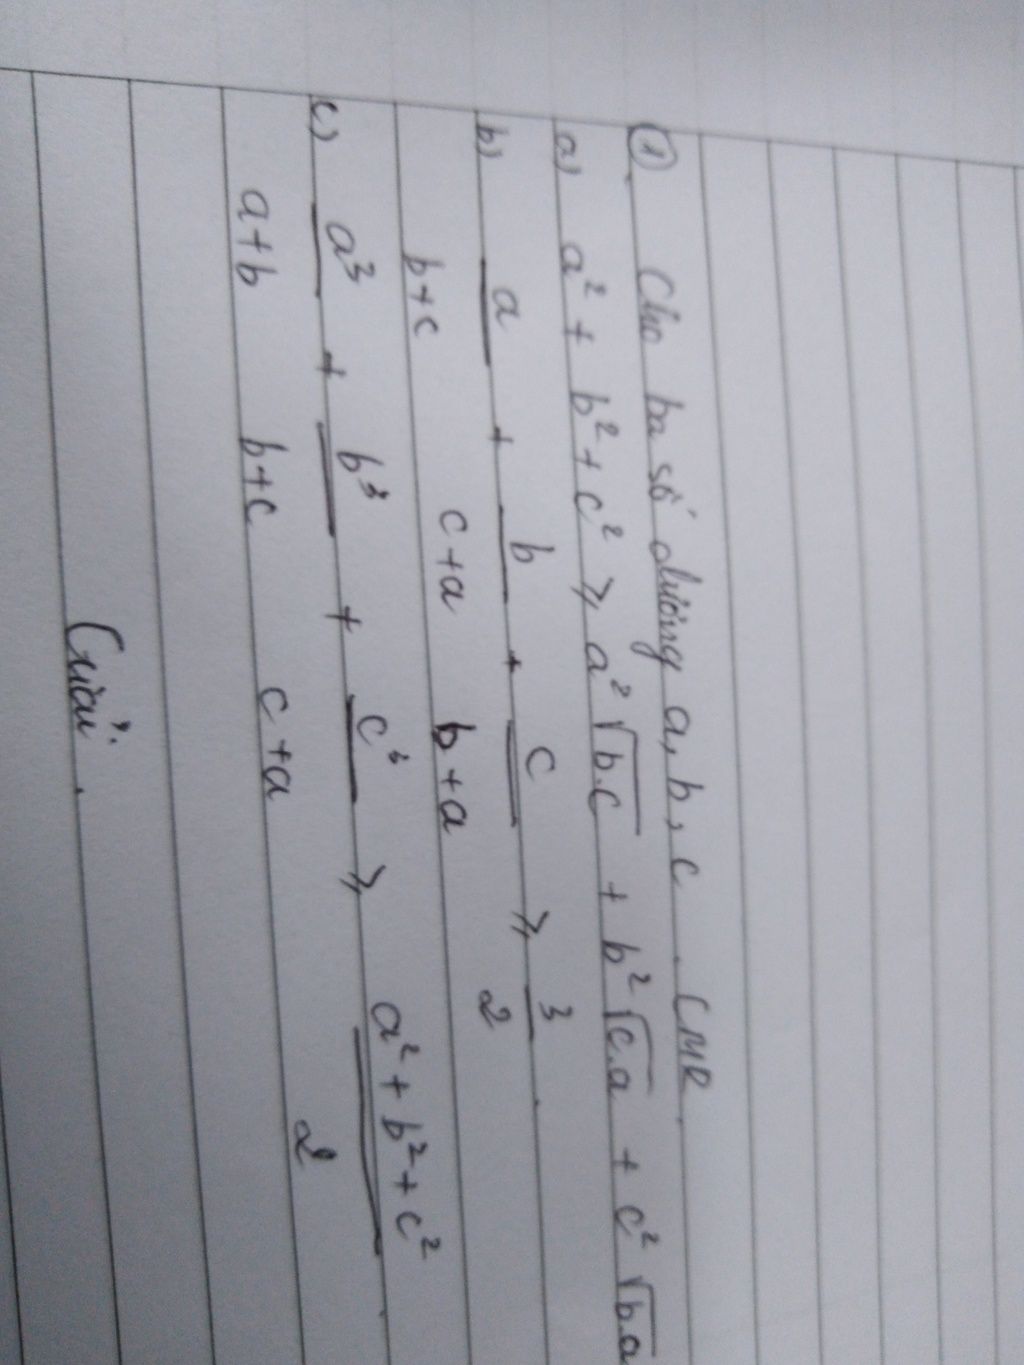 ① Cho ba số dương a, b, c. CMR.
a) a² + b² + c² ⩾ a²√b.c + b²√c.a + c²√b.a
b) a/b+c + b/c+a + c/b+a ⩾ 3/2.
c) a³/a+b + b³/b+c + c³/c+a ⩾ a²+b²+c²/2
Giải.